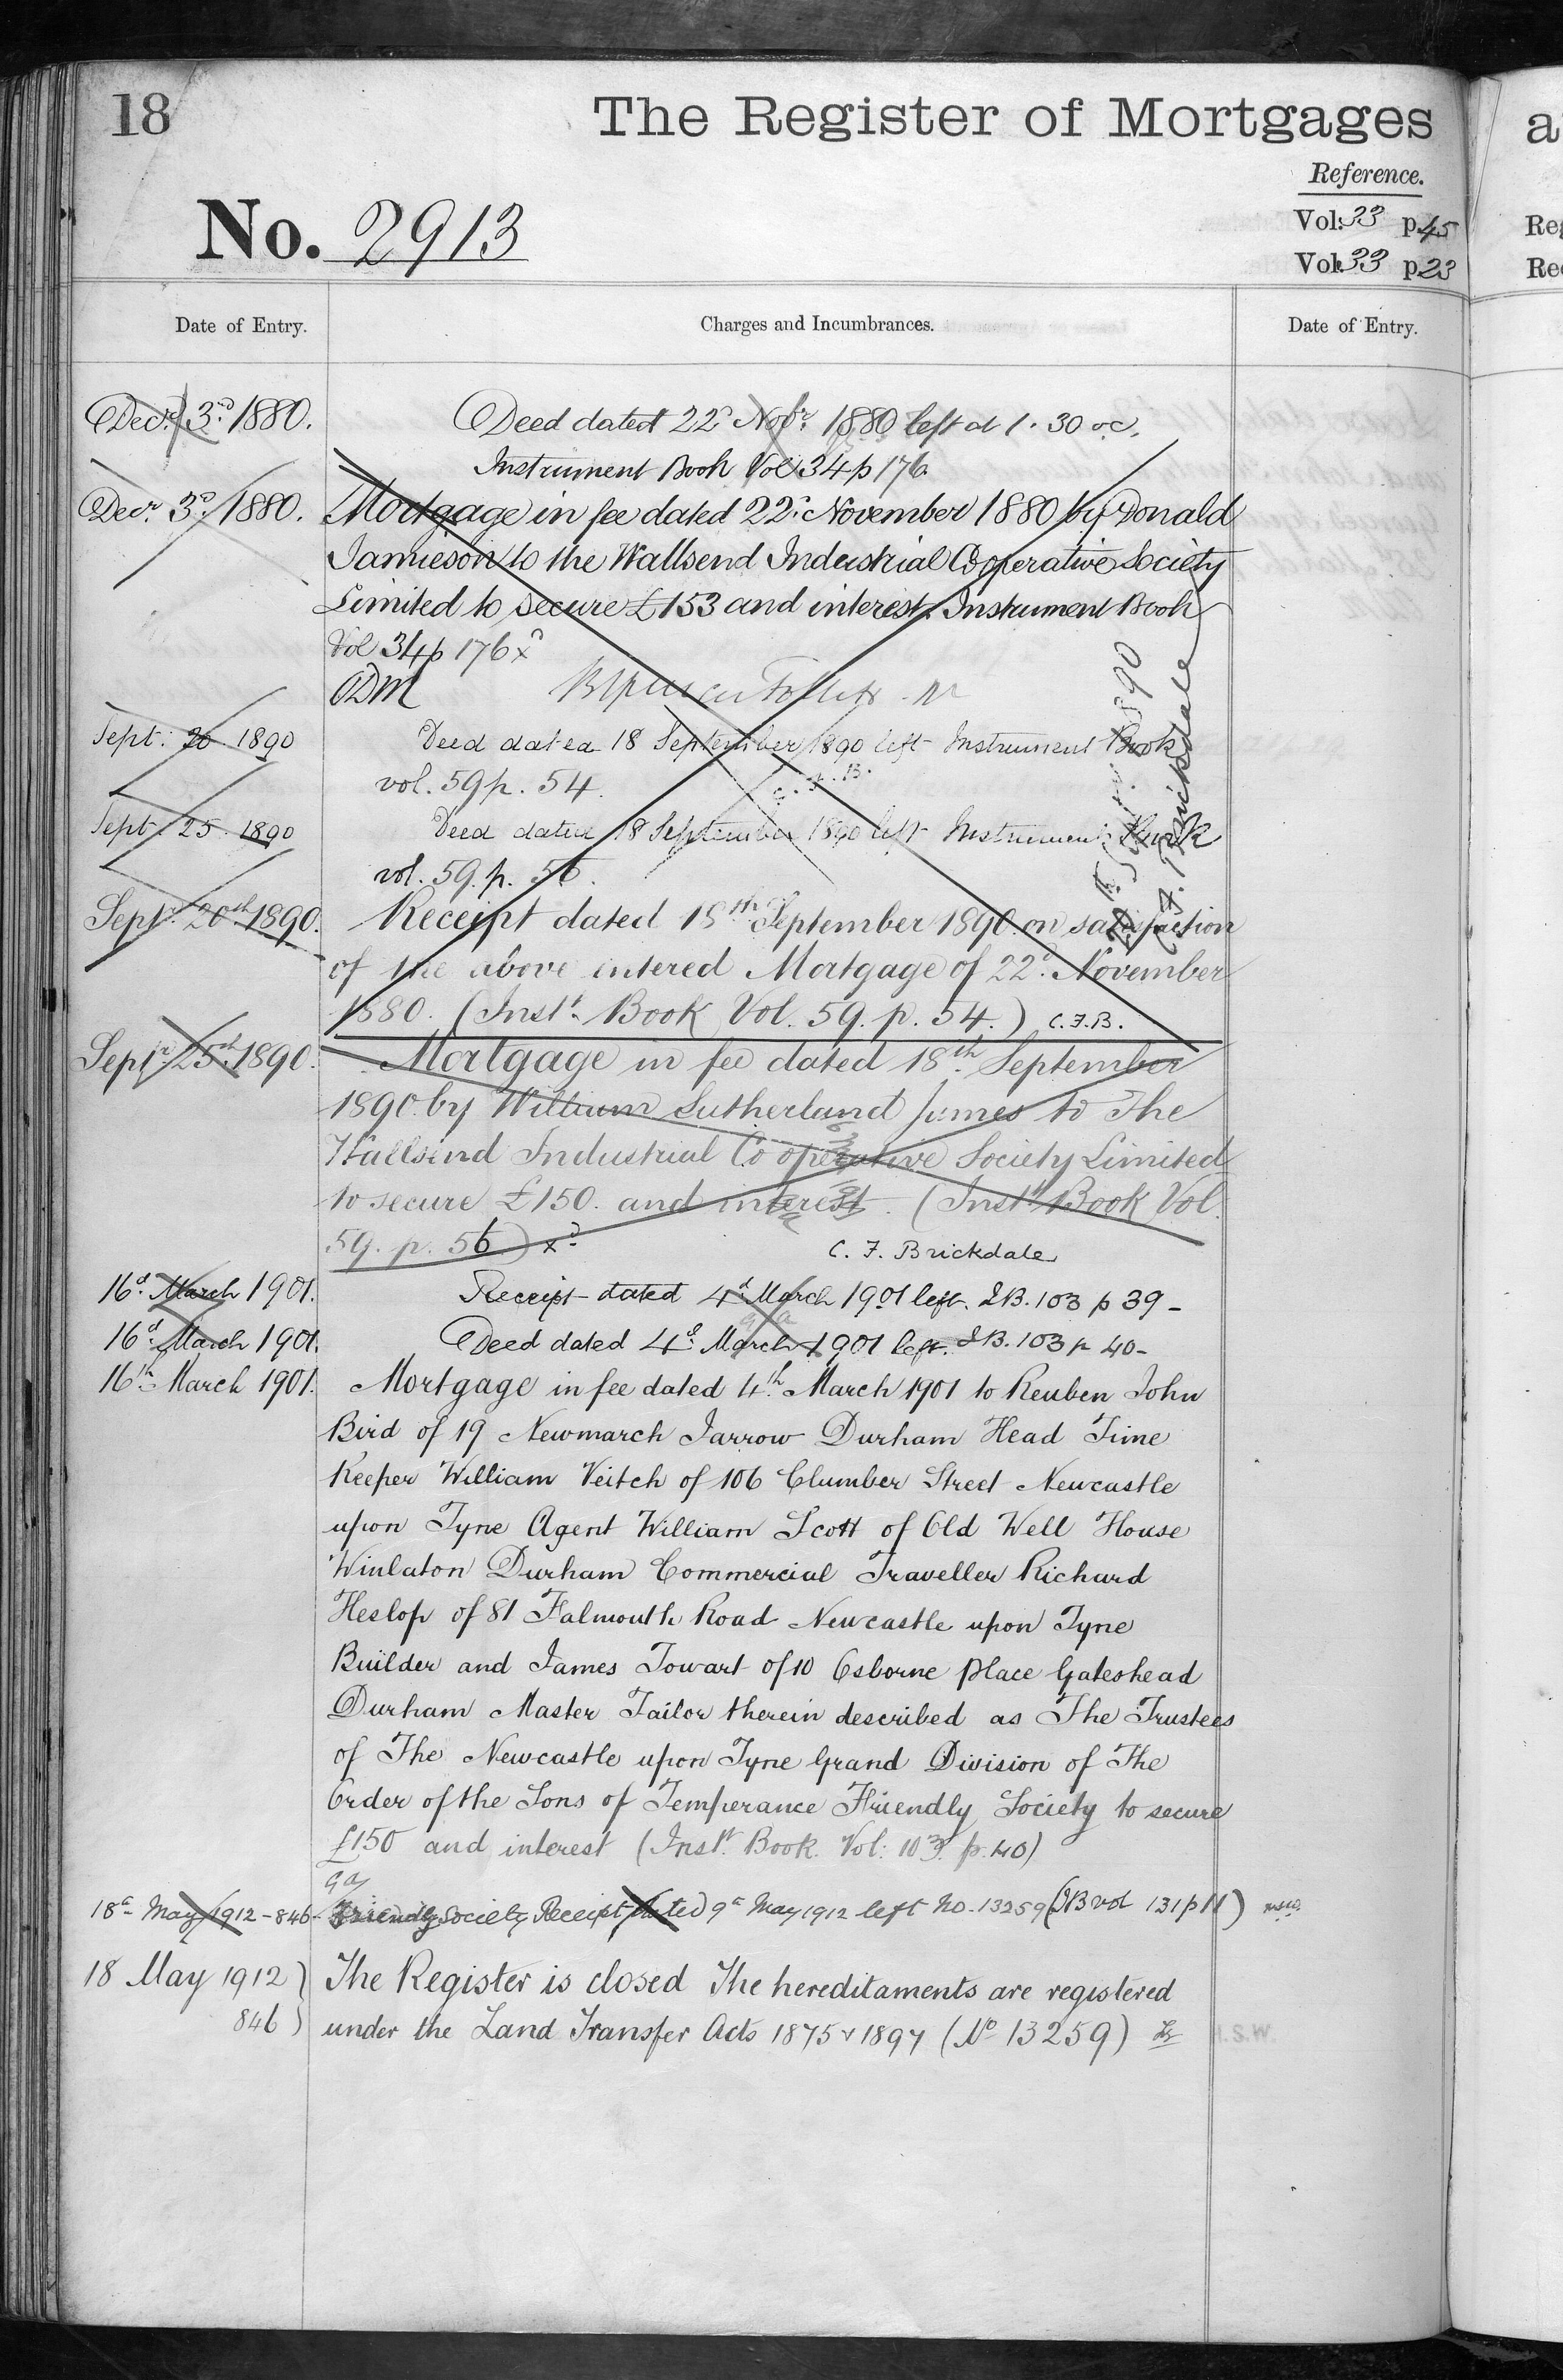 18
The Register of Mortgages
Reference.
No. 2913
Vol. 33 p. 45
Vol. 33 p. 23
Date of Entry.
Charges and Incumbrances.
Date of Entry.
Decr. 3rd 1880.
Deed dated 22d Novr. 1880 left at 1.30 oc.
Instrument Book Vol 34 p 176
Decr. 3d 1880.
Mortgage in fee dated 22d November 1880 by Donald
Jamieson to the Wallsend Industrial Cooperative Society
Limited to secure £153 and interest. Instrument Book
Vol 34 p 176 xd
Sept: 20 1890
Deed dated 18 September 1890 left Instrument Book
vol. 59 p. 54.
C.F.B.
Sept. 25. 1890
Deed dated 18 September 1890 left Instrument Book
vol. 59. p. 56.
C. F. Brickdale
Septr. 20th 1890.
Receipt dated 18th September 1890 on satisfaction
of the above entered Mortgage of 22d. November
1880. (Inst. Book Vol. 59. p. 54.) C.F.B.
Septr. 25th 1890.
Mortgage in fee dated 18th September
1890 by William Sutherland James to The
Wallsend Industrial Cooperative Society Limited
to secure £150. and interest. (Inst. Book Vol.
59. p. 56) xd
C. F. Brickdale
16d March 1901.
Receipt dated 4d March 1901 left. I.B. 103 p 39-
16d March 1901.
Deed dated 4d March 1901 left. I.B. 103 p 40-
16th March 1901.
Mortgage in fee dated 4th March 1901 to Reuben John
Bird of 19 Newmarch Jarrow Durham Head Time
Keeper William Veitch of 106 Clumber Street Newcastle
upon Tyne Agent William Scott of Old Well House
Winlaton Durham Commercial Traveller Richard
Heslop of 81 Falmouth Road Newcastle upon Tyne
Builder and James Towart of 10 Osborne Place Gateshead
Durham Master Tailor therein described as The Trustees
of The Newcastle upon Tyne Grand Division of The
Order of the Sons of Temperance Friendly Society to secure
£150 and interest (Inst. Book. Vol: 103. p. 40)
18d May 1912 - 846-
Friendly Society Receipt dated 9d May 1912 left No. 13259 (IB vol 131 p 11)
18 May 1912)
The Register is closed The hereditaments are registered
846)
under the Land Transfer Acts 1875 & 1897 (No 13259)